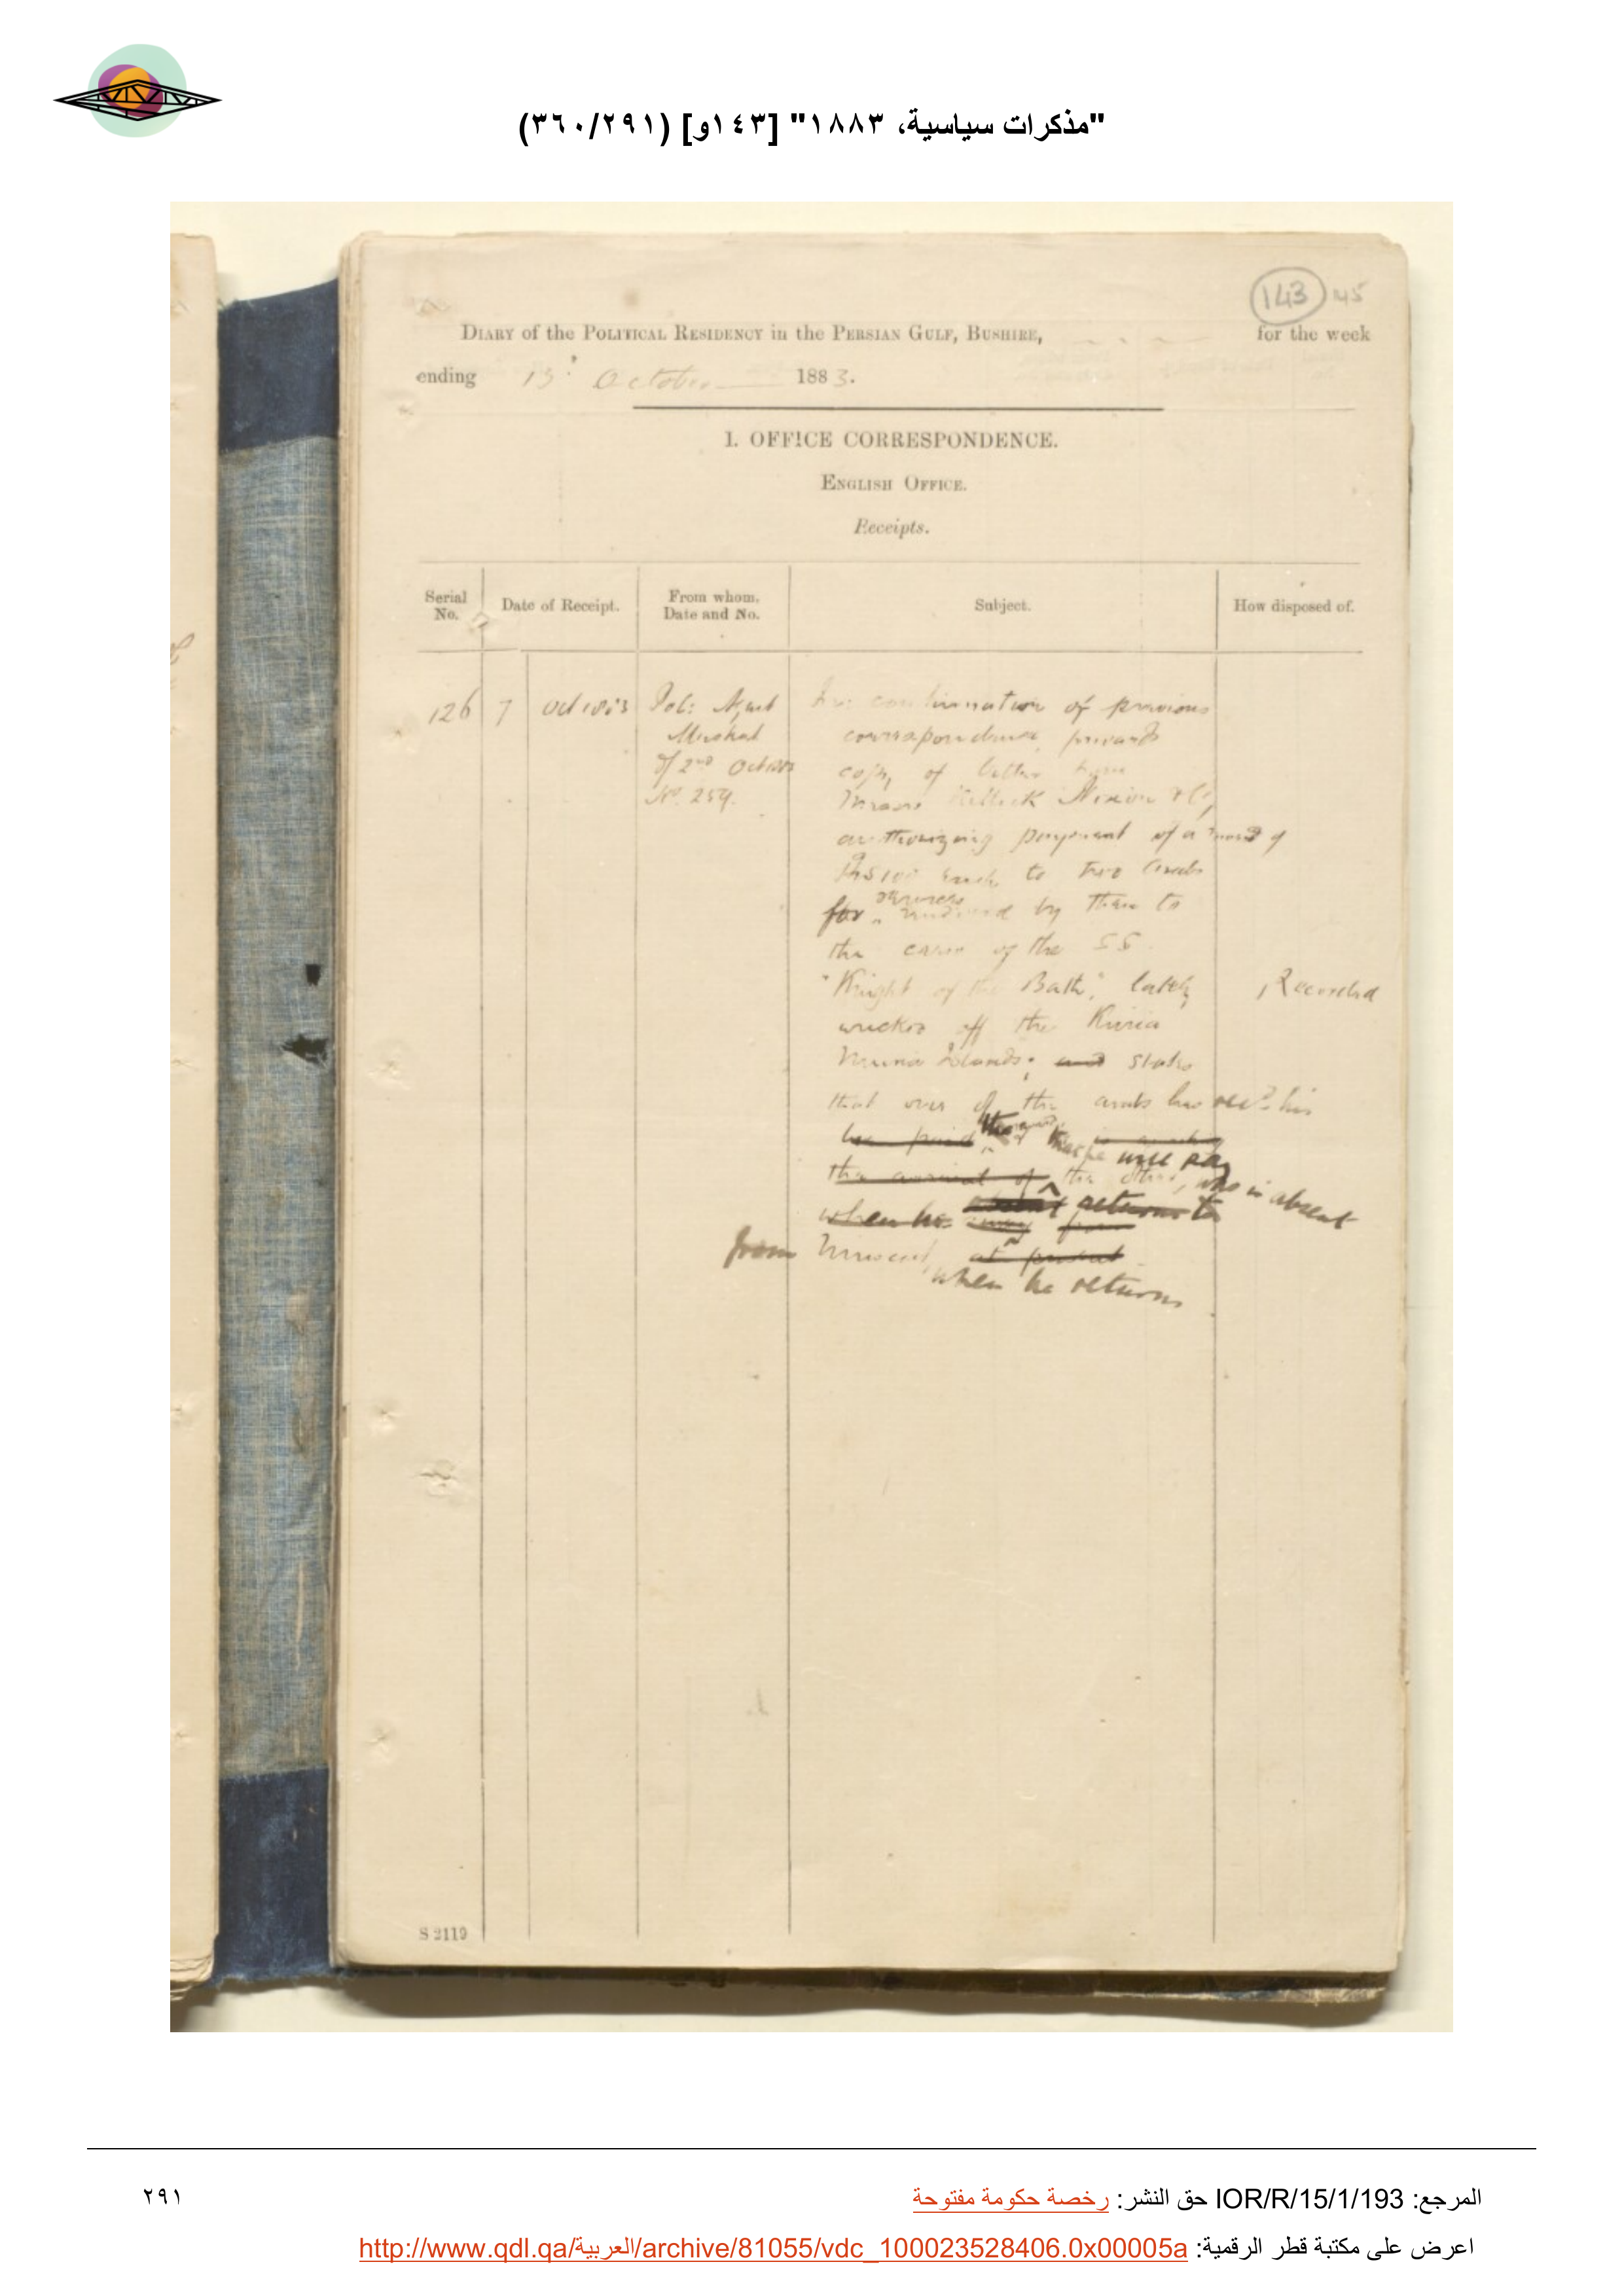 "مذكرات سياسية، ١٨٨٣" [١٤٣و] (٣٦٠/٢٩١)
143 145
DIARY of the POLITICAL RESIDENCY in the PERSIAN GULF, BUSHIRE, for the week
ending 13 October 1883.
I. OFFICE CORRESPONDENCE.
ENGLISH OFFICE.
Receipts.
Serial No. Date of Receipt. From whom, Date and No. Subject. How disposed of.
126 7 Oct 1883 Pol: Agent
Muskat
of 2nd Oct 1883
No. 259.
In continuation of previous
correspondence forwards
copy of letter from
Messrs Killick Nixon & Co,
authorizing payment of a reward of
Rs 100 each to two Arabs
for services rendered by them to
the crew of the SS
"Knight of the Bath", lately
wrecked off the Kuria
Muria Islands; and states
that one of the arabs has recd his
be paid that he will pay
the arrival of the other, who is absent
when he absent returns to
away from
from Muscat, at present
when he returns
Recorded
S 2119
المرجع: IOR/R/15/1/193 حق النشر: رخصة حكومة مفتوحة
٢٩١
اعرض على مكتبة قطر الرقمية: http://www.qdl.qa/العربية/archive/81055/vdc_100023528406.0x00005a